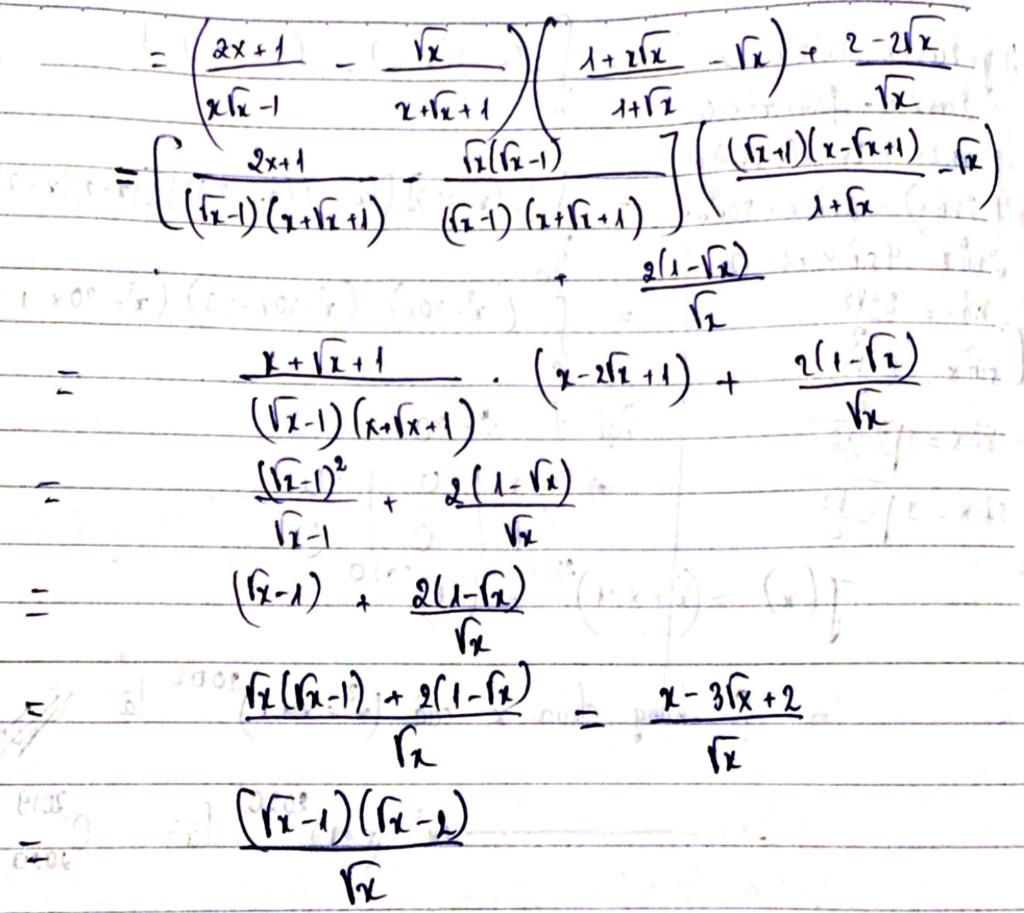 = ( (2x+1)/(x√x -1) - √x/(x+√x+1) ) ( (1+x√x)/(1+√x) - √x ) + (2-2√x)/√x
= [ (2x+1)/((√x-1)(x+√x+1)) - √x(√x-1)/((√x-1)(x+√x+1)) ] ( (√x+1)(x-√x+1)/(1+√x) - √x )
+ 2(1-√x)/√x
= (x+√x+1)/((√x-1)(x+√x+1)) . (x-2√x+1) + 2(1-√x)/√x
= (√x-1)²/(√x-1) + 2(1-√x)/√x
= (√x-1) + 2(1-√x)/√x
= (√x(√x-1) + 2(1-√x))/√x = (x-3√x+2)/√x
= (√x-1)(√x-2)/√x